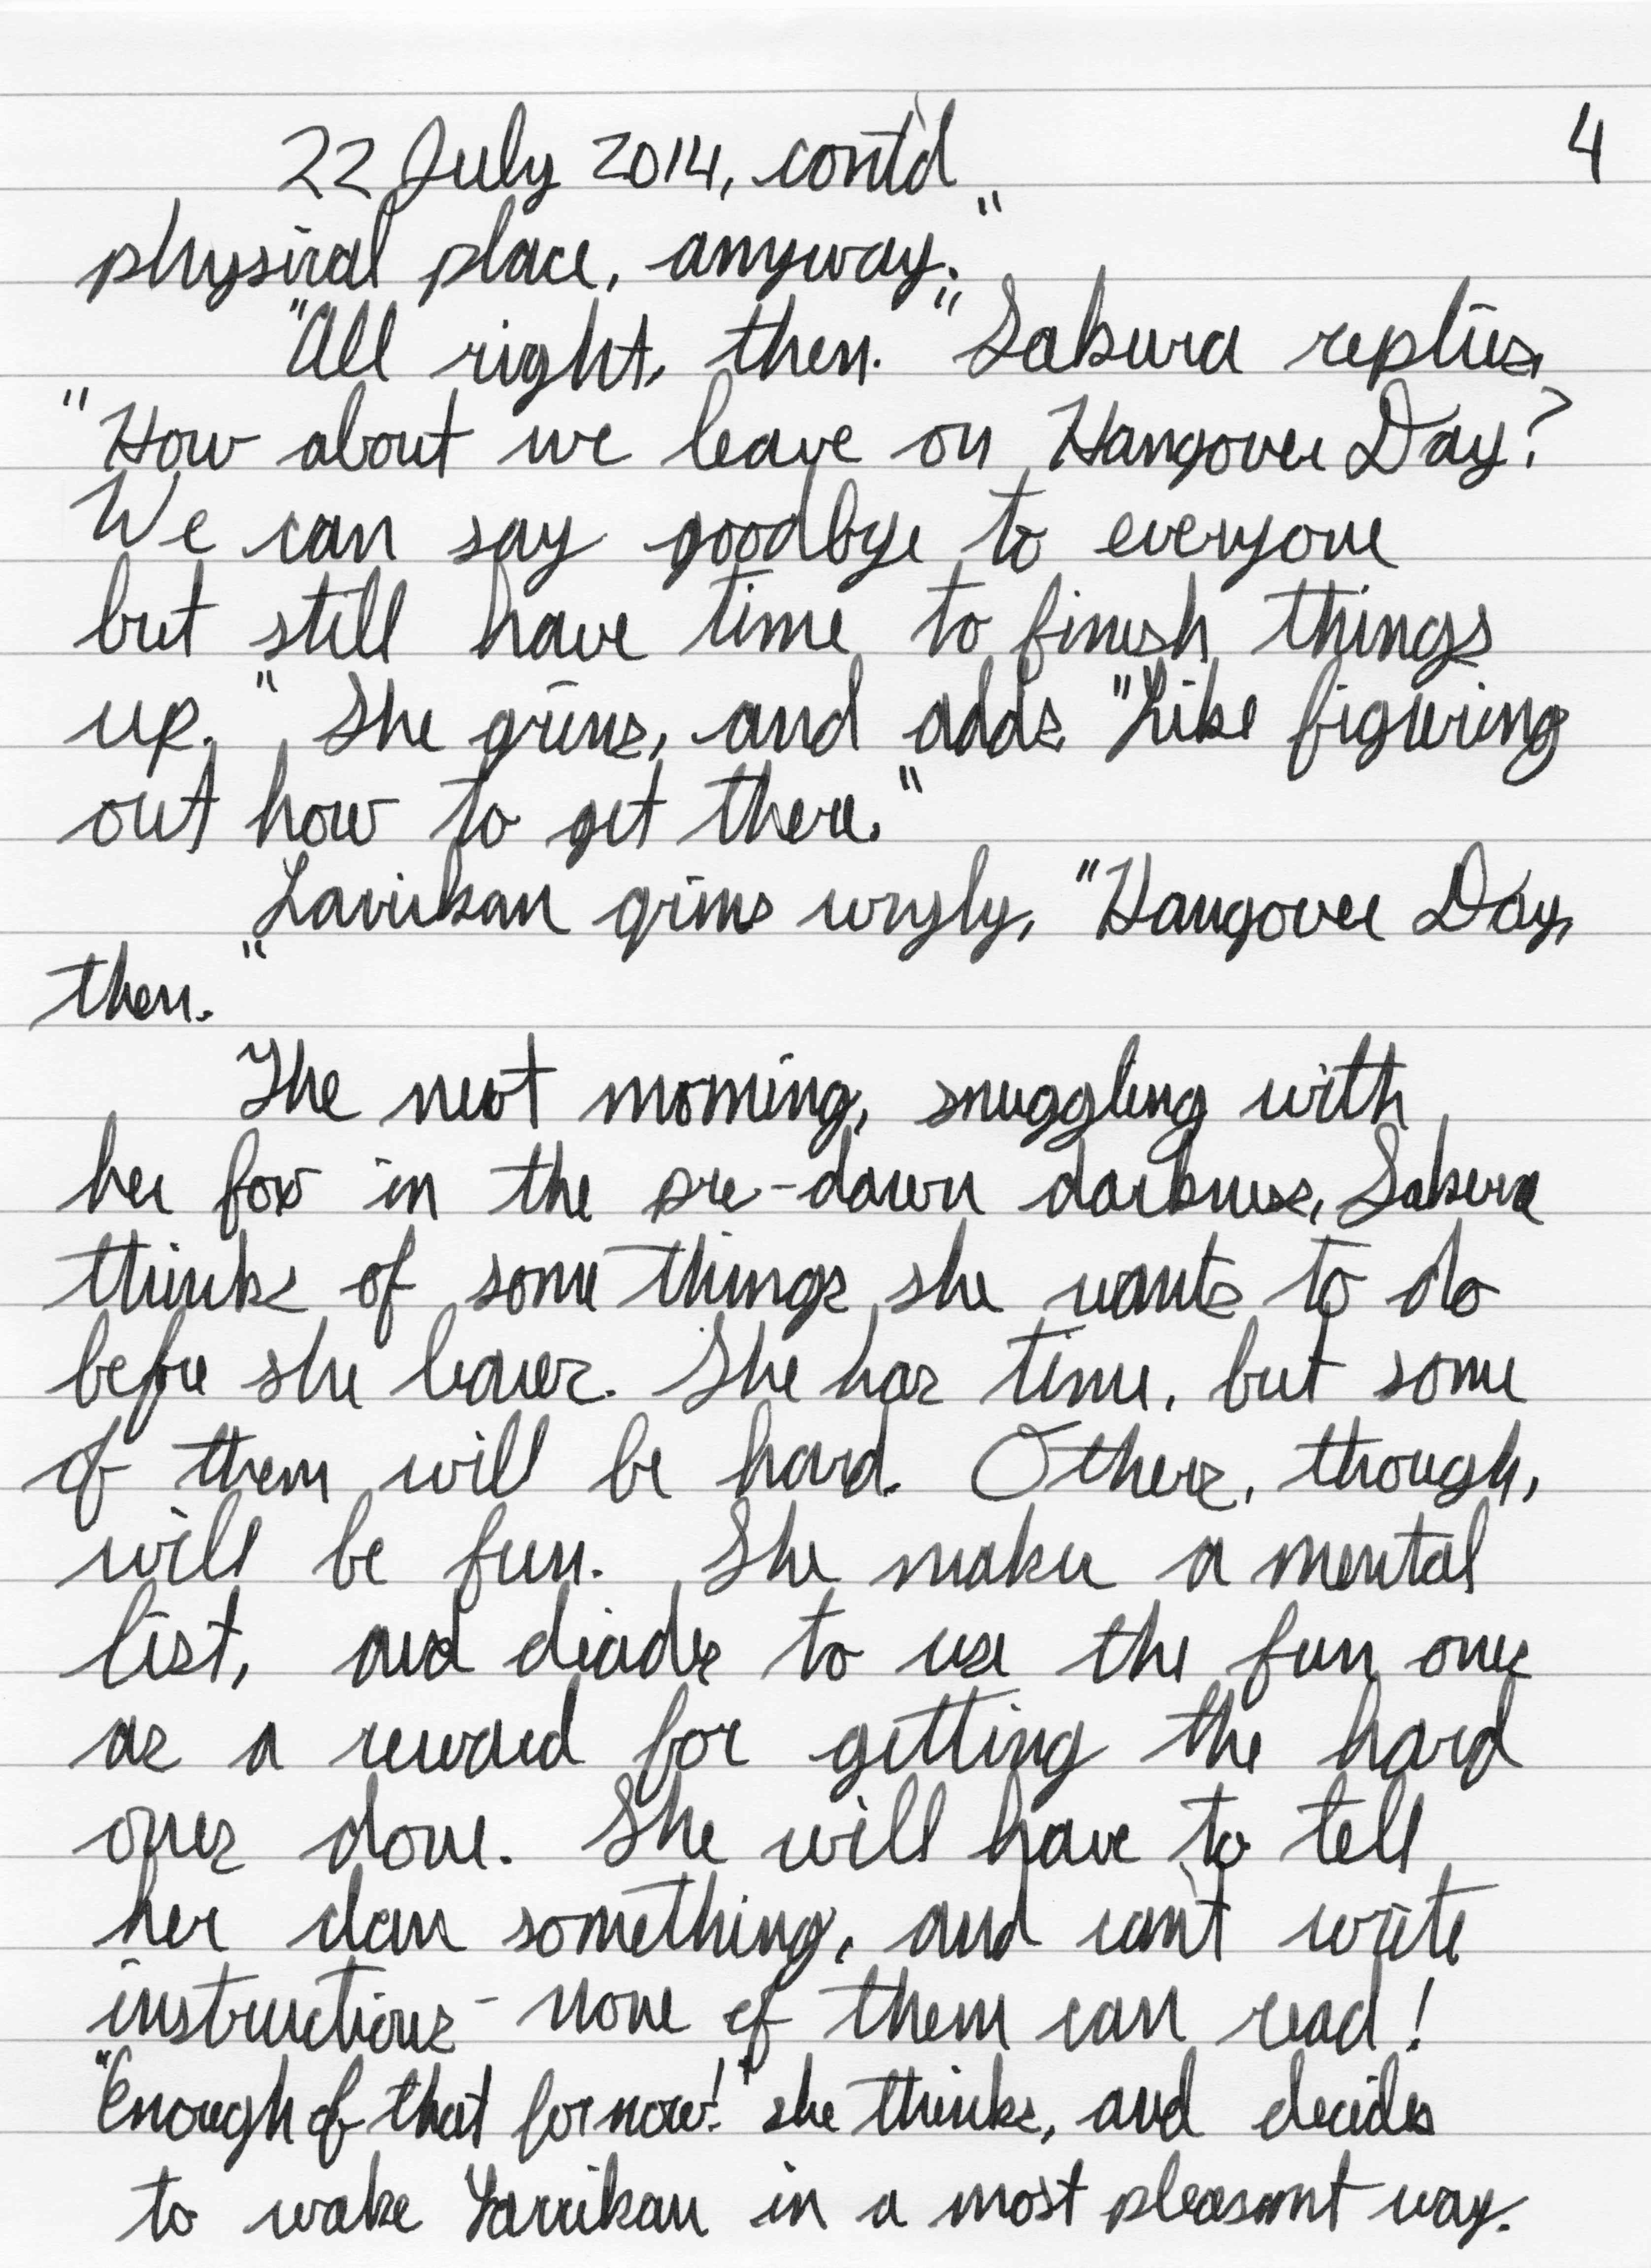 22 July 2014, cont'd 4
physical place, anyway."
"All right, then." Sakura replies,
"How about we leave on Hangover Day?
We can say goodbye to everyone
but still have time to finish things
up." She grins, and adds, "Like figuring
out how to get there."
Lavrikan grins wryly, "Hangover Day,
then."
The next morning, snuggling with
her fox in the pre-dawn darkness, Sakura
thinks of some things she wants to do
before she leaves. She has time, but some
of them will be hard. Others, though,
will be fun. She makes a mental
list, and decides to use the fun ones
as a reward for getting the hard
ones done. She will have to tell
her clan something, and can't write
instructions - none of them can read!
"Enough of that for now!" she thinks, and decides
to wake in a most pleasant way.